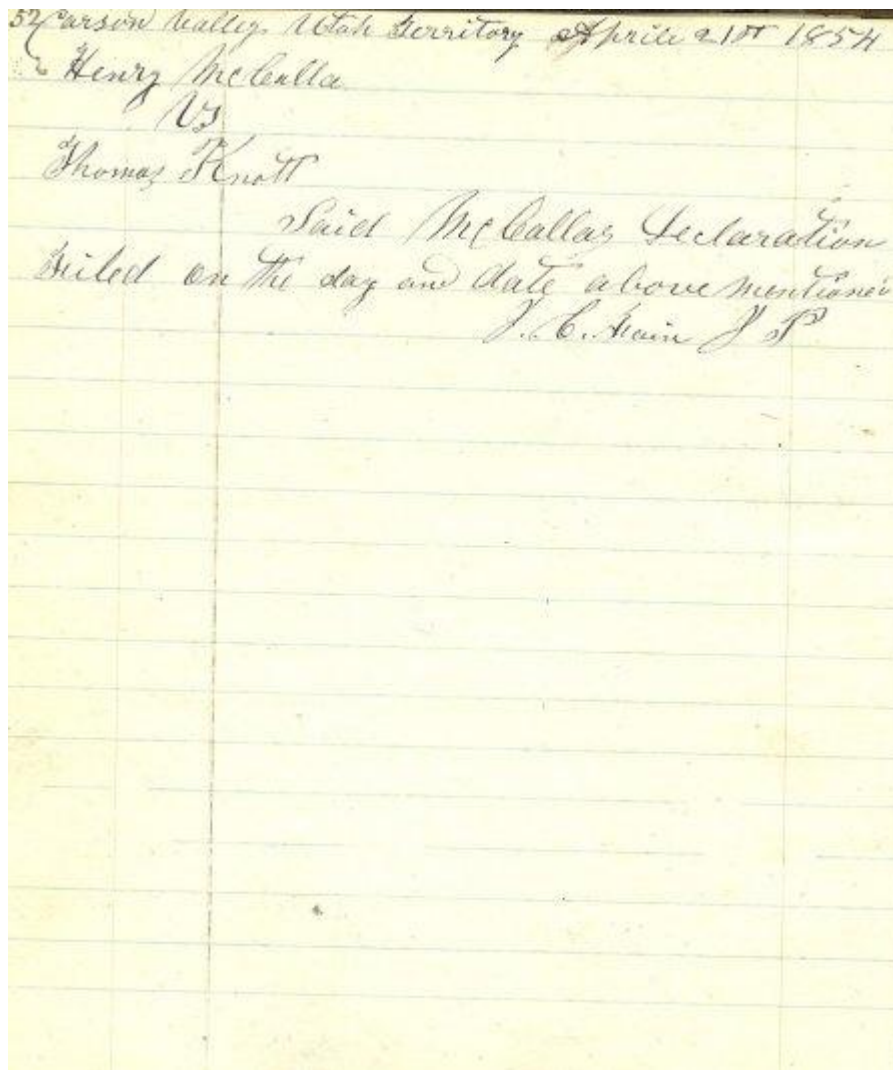 52 Carson Valley Utah Territory Aprile 21st 1854
Henry McCalla
VS
Thomas Knott
Said McCallas Declaration
Filed on the day and date above mentioned
J. C. Fain J P